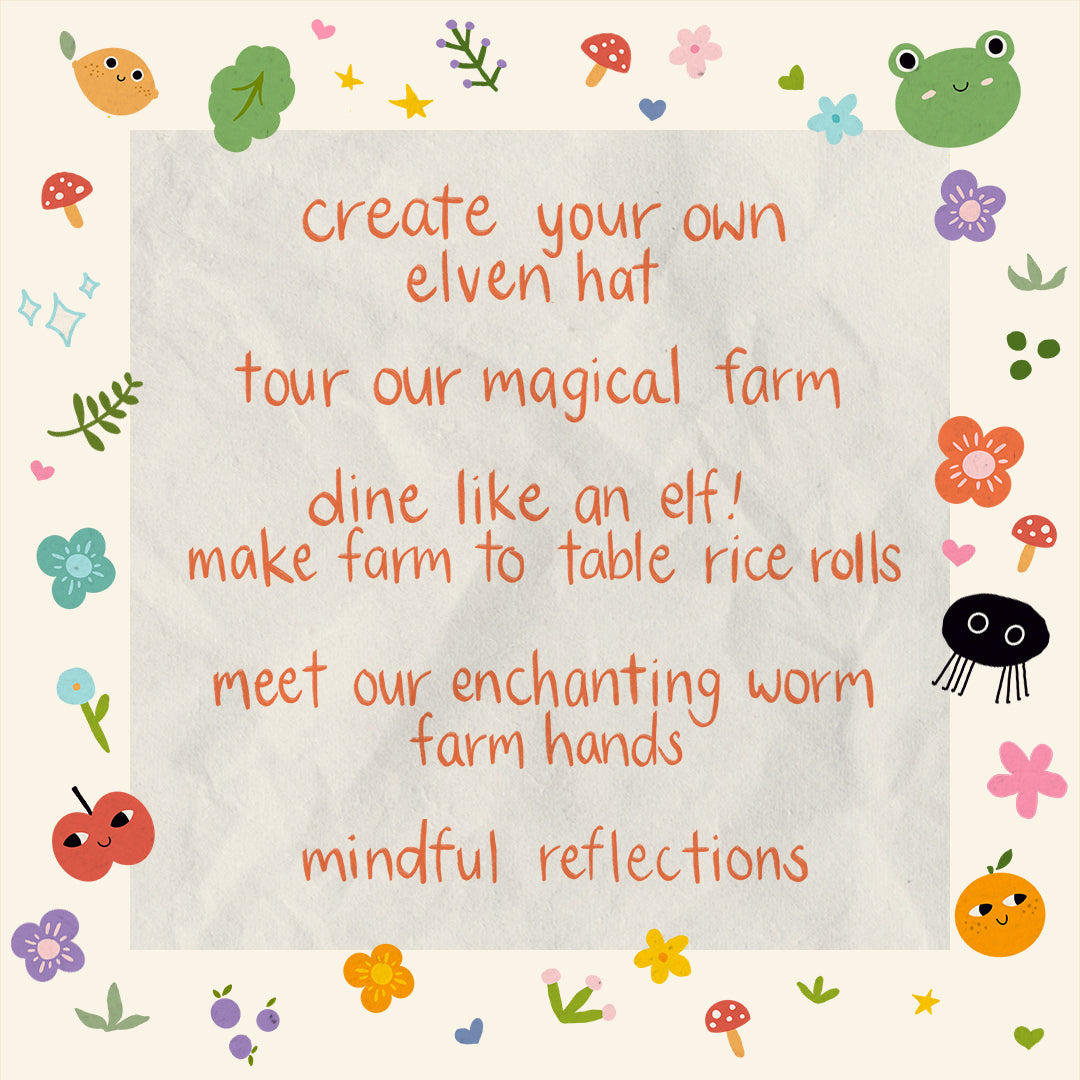 create your own
elven hat
tour our magical farm
dine like an elf!
make farm to table rice rolls
meet our enchanting worm
farm hands
mindful reflections